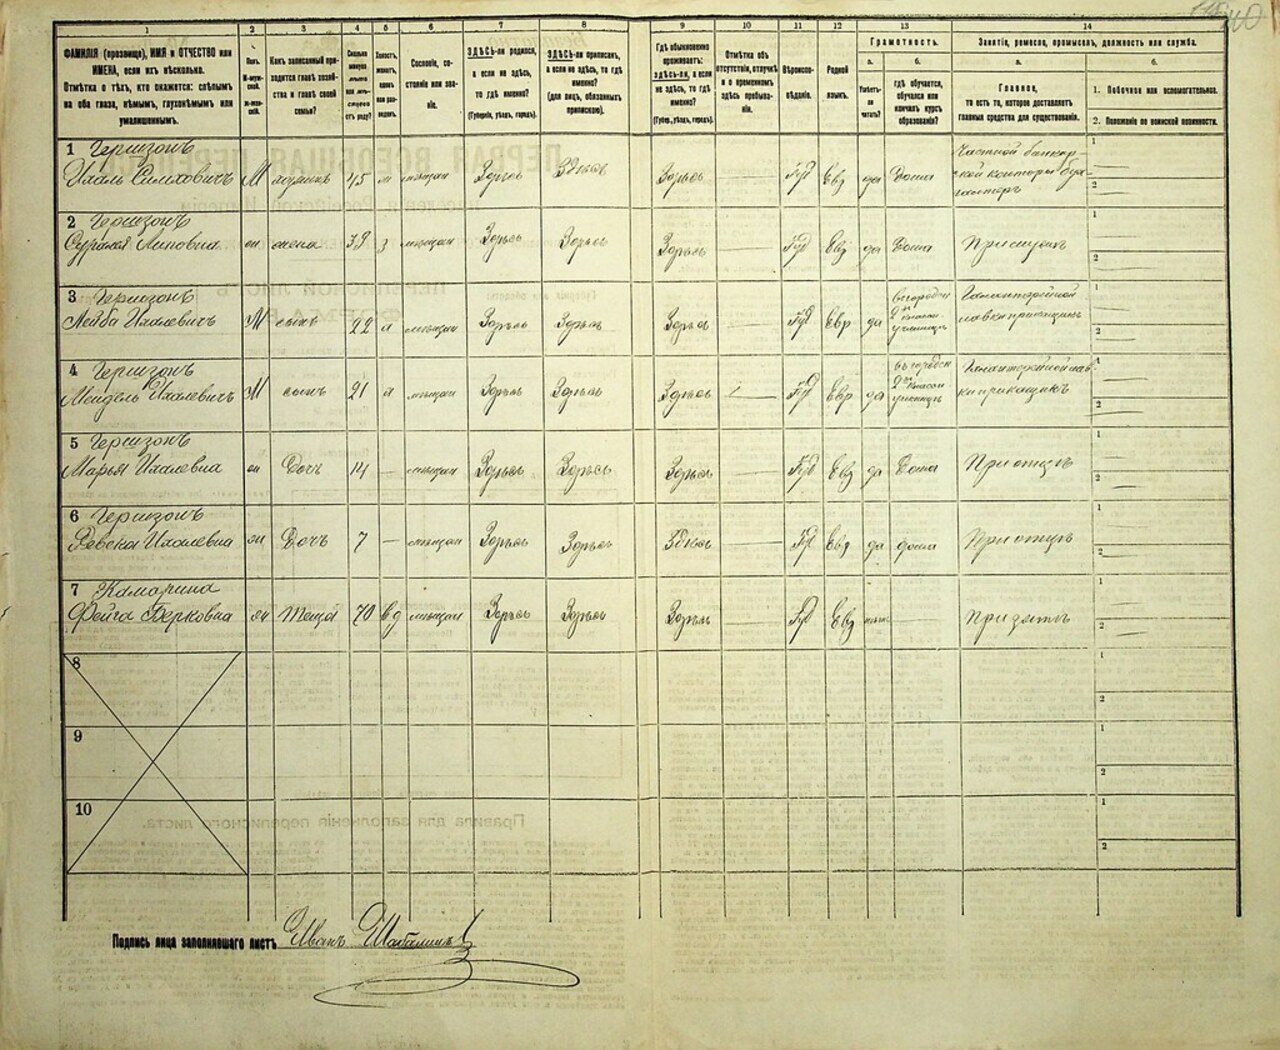 1 2 3 4 5 6 7 8 9 10 11 12 13 14
ФАМИЛІЯ (прозвище), ИМЯ и ОТЧЕСТВО или ИМЕНА, если ихъ нѣсколько.
Отмѣтка о тѣхъ, кто окажется: слѣпымъ на оба глаза, нѣмымъ, глухонѣмымъ или умалишеннымъ.
Полъ.
М-мужской.
Ж-женскій.
Какъ записанный приходится главѣ хозяйства и главѣ своей семьи?
Сколько минуло лѣтъ или мѣсяцевъ отъ роду?
Холостъ, женатъ, вдовъ или разведенъ.
Сословіе, состояніе или званіе.
ЗДѢСЬ-ли родился, а если не здѣсь, то гдѣ именно?
(Губернія, уѣздъ, городъ).
ЗДѢСЬ-ли приписанъ, а если не здѣсь, то гдѣ именно?
(для лицъ, обязанныхъ припискою).
Гдѣ обыкновенно проживаетъ: здѣсь-ли, а если не здѣсь, то гдѣ именно?
(Губер., уѣздъ, городъ).
Отмѣтка объ отсутствіи, отлучкѣ и о временномъ здѣсь пребываніи.
Вѣроисповѣданіе.
Родной языкъ.
Грамотность.
а. Умѣетъ-ли читать?
б. гдѣ обучается, обучался или кончилъ курсъ образованія?
Занятіе, ремесло, промыселъ, должность или служба.
а. Главное, то есть то, которое доставляетъ главныя средства для существованія.
б.
1. Побочное или вспомогательное.
2. Положеніе по воинской повинности.
1 Гершзонъ
Ихаль Симховичъ М 45 ж мѣщан Здѣсь Здѣсь Здѣсь Іуд Евр да Дома Частной банкорской конторы бухгалтеръ
2 Гершзонъ
жена 39 з мѣщан Здѣсь Здѣсь Здѣсь Іуд Евр да Дома При мужѣ
3 Гершзонъ
Лейба Ихалевичъ М сынъ 22 х мѣщан Здѣсь Здѣсь Здѣсь Іуд Евр да в городск 2х класн. училищѣ Галантерейной лавки прикащикъ
4 Гершзонъ
Мендель Ихалевичъ М сынъ 21 х мѣщан Здѣсь Здѣсь Здѣсь Іуд Евр да въ городск 2х класн училищѣ Галантерейной лавки прикащикъ
5 Гершзонъ
Марья Ихалевна Дочь 14 — мѣщан Здѣсь Здѣсь Здѣсь Іуд Евр да Дома При отцѣ
6 Гершзонъ
Ревека Ихалевна Дочь 7 — мѣщан Здѣсь Здѣсь Здѣсь Іуд Евр да дома При отцѣ
7 Камарина
Фейга Берковна Теща 70 вд мѣщан Здѣсь Здѣсь Здѣсь Іуд Евр — При зятѣ
8
9
10
Подпись лица заполнявшаго листъ Иванъ